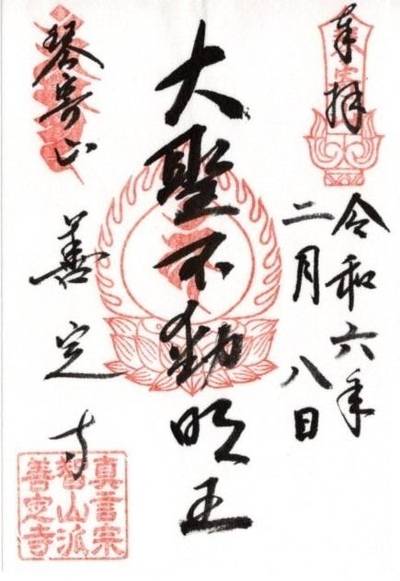 奉拝
令和六年
二月八日
大聖不動明王
琴寄山
善定寺
真言宗
智山派
善定寺